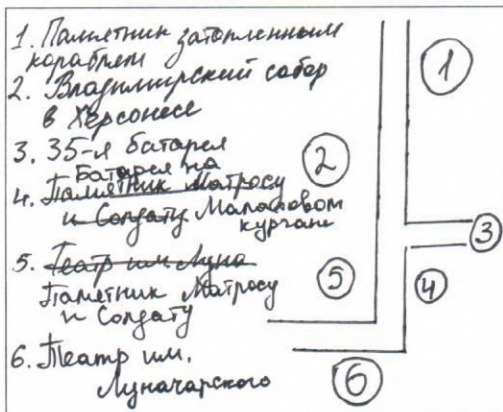 1. Памятник затопленным
кораблям
2. Владимирский собор
в Херсонесе
3. 35-я батарея
Батарея на
4. Памятник Матросу
и Солдату Малаховом
кургане
5. Театр им. Луна
Памятник Матросу
и Солдату
6. Театр им.
Луначарского
1
2
3
4
5
6